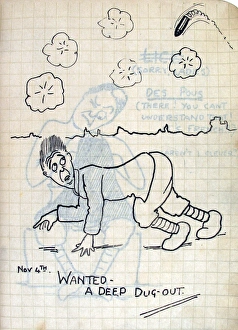 DES POUS
(THERE! YOU CAN'T
UNDERSTAND
NOV 4TH.
WANTED -
A DEEP DUG-OUT.